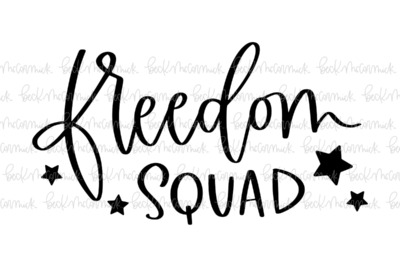 freedom
SQUAD